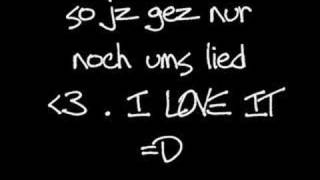 so jz gez nur
noch ums lied
<3 . I LOVE IT
=D